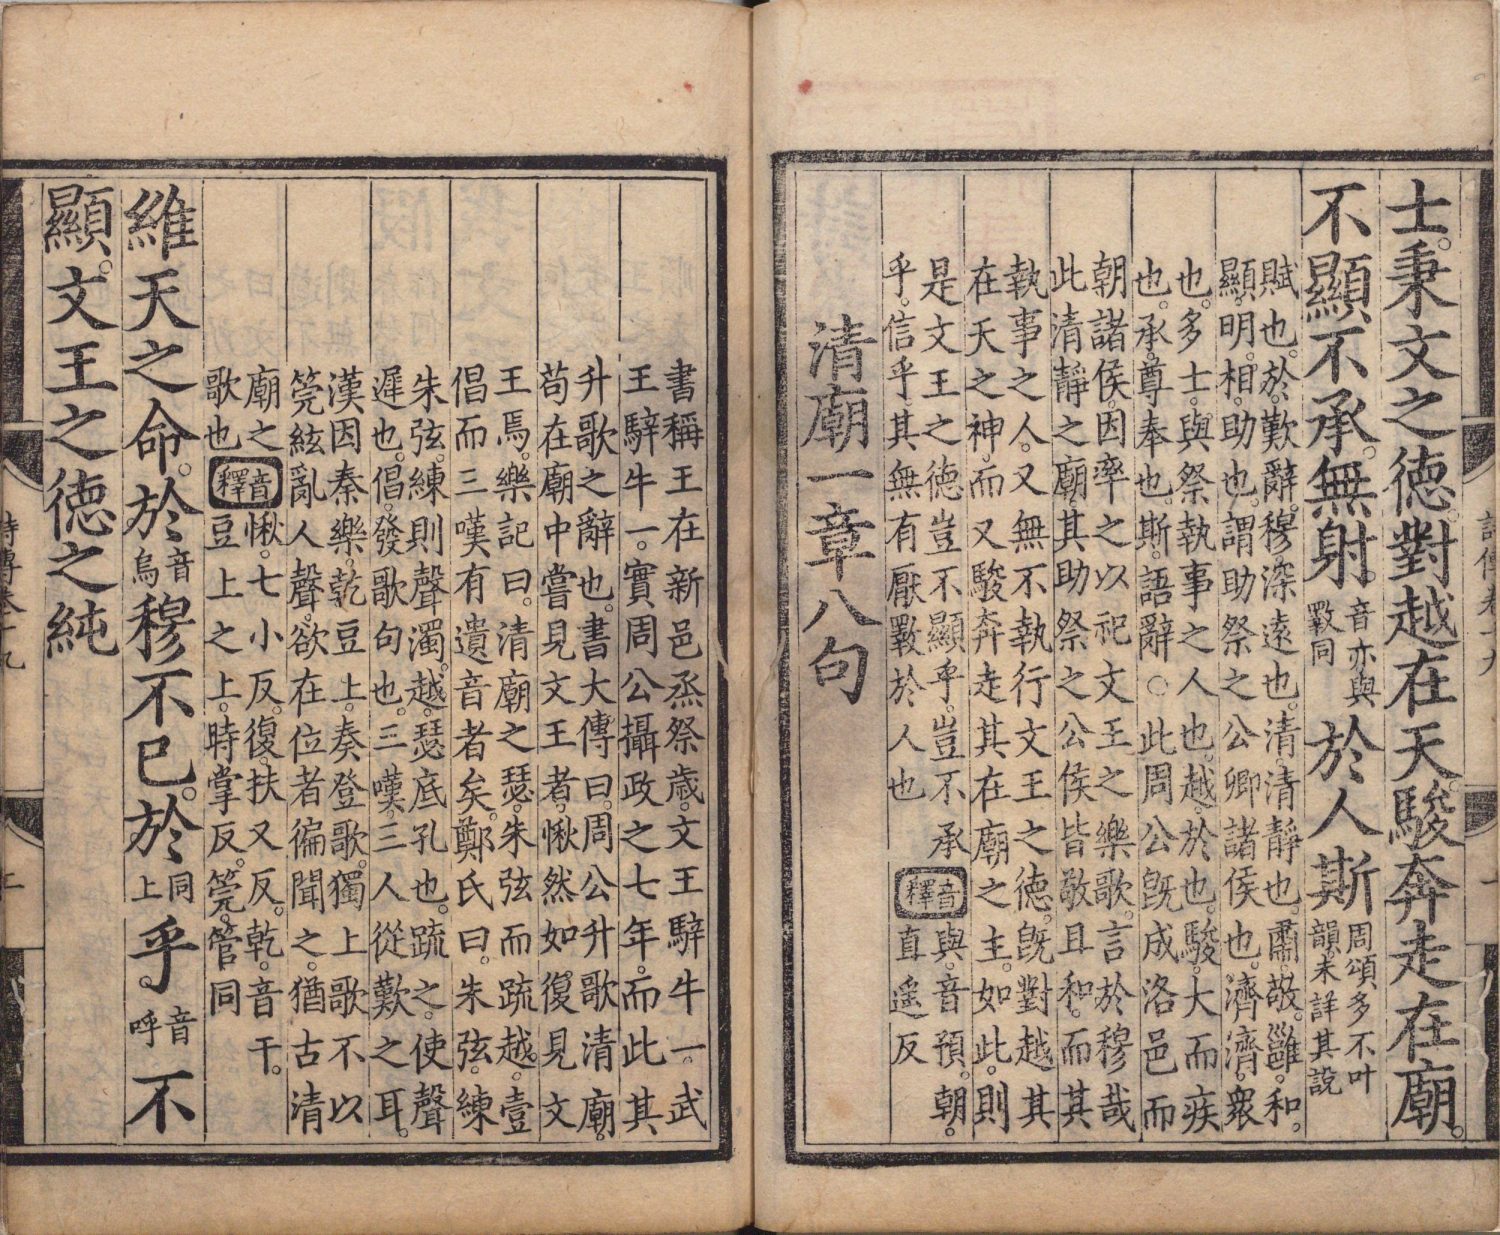 士。秉文之德。對越在天。駿奔走在廟。
不顯不承。無射。音亦與斁同於人斯周頌多不叶韻。未詳其說
賦也。於歎辭。穆深遠也。清清靜也。肅敬。雝和。
顯明。相助也。謂助祭之公卿諸侯也。濟濟。衆
也。多士。與祭執事之人也。越。於也。駿。大而疾
也。承。尊奉也。斯語辭○此周公旣成洛邑而
朝諸侯。因率之以祀文王之樂歌。言於穆哉
此清靜之廟其助祭之公侯皆敬且和。而其
執事之人。又無不執行文王之德。旣對越其
在天之神。而又駿奔走其在廟之主。如此。則
是文王之德豈不顯乎。豈不承
乎。信乎。其無有厭斁於人也
音釋與。音預。朝。
直遥反
清廟一章八句
書稱王在新邑烝祭歲。文王騂牛一。武
王騂牛一。實周公攝政之七年。而此其
升歌之辭也。書大傳曰。周公升歌清廟。
苟在廟中嘗見文王者。愀然如復見文
王焉。樂記曰。清廟之瑟。朱弦而疏越。壹
倡而三嘆。有遺音者矣。鄭氏曰。朱弦。練
朱弦。練則聲濁。越。瑟底孔也。疏之。使聲
遲也。倡。發歌句也。三嘆。三人從歎之耳。
漢因秦樂。乾豆上。奏登歌。獨上歌。不以
筦絃亂人聲。欲在位者徧聞之。猶古清
廟之
歌也
音釋愀。七小反。復。扶又反。乾。音干。
豆上之上。時掌反。筦。管同
維天之命。於音烏穆不已。於同上乎。音呼不
顯。文王之德之純
詩傳卷十九
詩傳卷十九